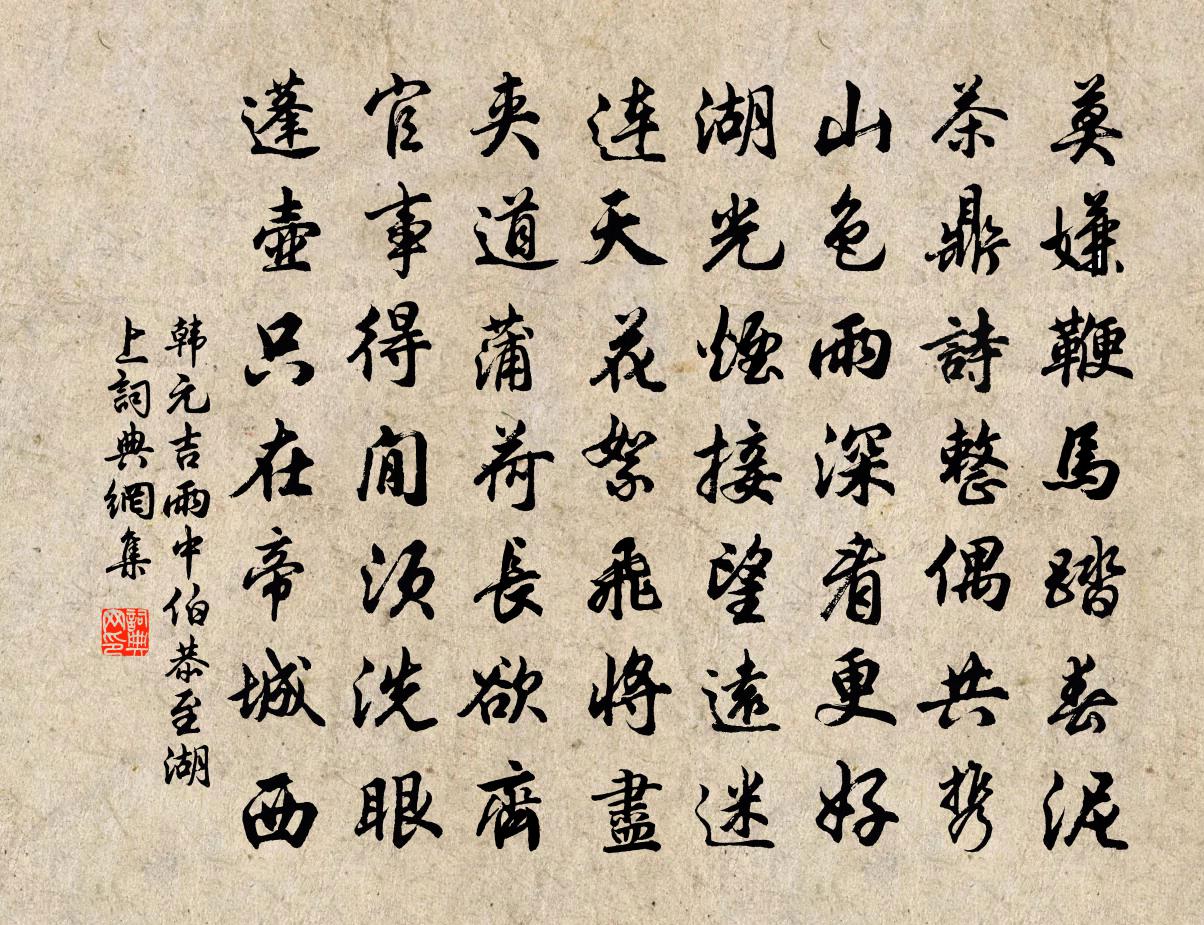 莫嫌鞭馬踏春泥
茶鼎詩整偶共携
山色雨深看更好
湖光煙接望遠迷
連天花絮飛將盡
夾道蒲荷長欲齊
官事得閒須洗眼
蓬壺只在帝城西
韩元吉雨中伯恭至湖
上詞典網集
詞典
网印